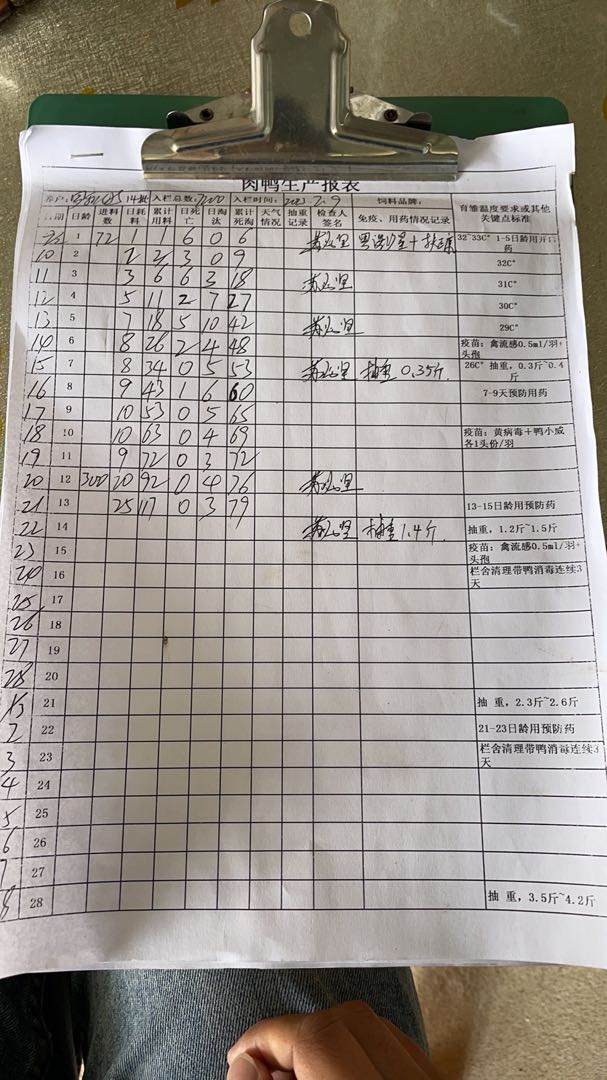 肉鸭生产报表
养户: 14批 入栏总数: 7200 入栏时间: 2023.2.9 饲料品牌: 育雏温度要求或其他关键点标准
日期 日龄 进料数 日耗料 累计用料 日死亡 日淘汰 累计死淘 天气情况 抽重记录 检查人签名 免疫、用药情况记录
1 72 6 0 6 32~33C° 1-5日龄用开口药
10 2 2 2 3 0 9 32C°
11 3 3 6 6 3 18 31C°
12 4 5 11 2 7 27 30C°
13 5 7 18 5 10 42 29C°
14 6 8 26 2 4 48 疫苗：禽流感0.5ml/羽+头孢
15 7 8 34 0 5 53 抽重 0.35斤. 26C° 抽重，0.3斤~0.4斤
16 8 9 43 1 6 60 7-9天预防用药
17 9 10 53 0 5 65
18 10 10 63 0 4 69 疫苗：黄病毒＋鸭小威各1头份/羽
19 11 9 72 0 3 72
20 12 300 20 92 0 4 76
21 13 25 117 0 3 79 13-15日龄用预防药
22 14 抽重 1.4斤. 抽重，1.2斤~1.5斤
23 15 疫苗：禽流感0.5ml/羽+头孢
24 16 栏舍清理带鸭消毒连续3天
25 17
26 18
27 19
28 20
21 抽 重，2.3斤~2.6斤
2 22 21-23日龄用预防药
3 23 栏舍清理带鸭消毒连续3天
4 24
5 25
6 26
7 27
8 28 抽 重，3.5斤~4.2斤